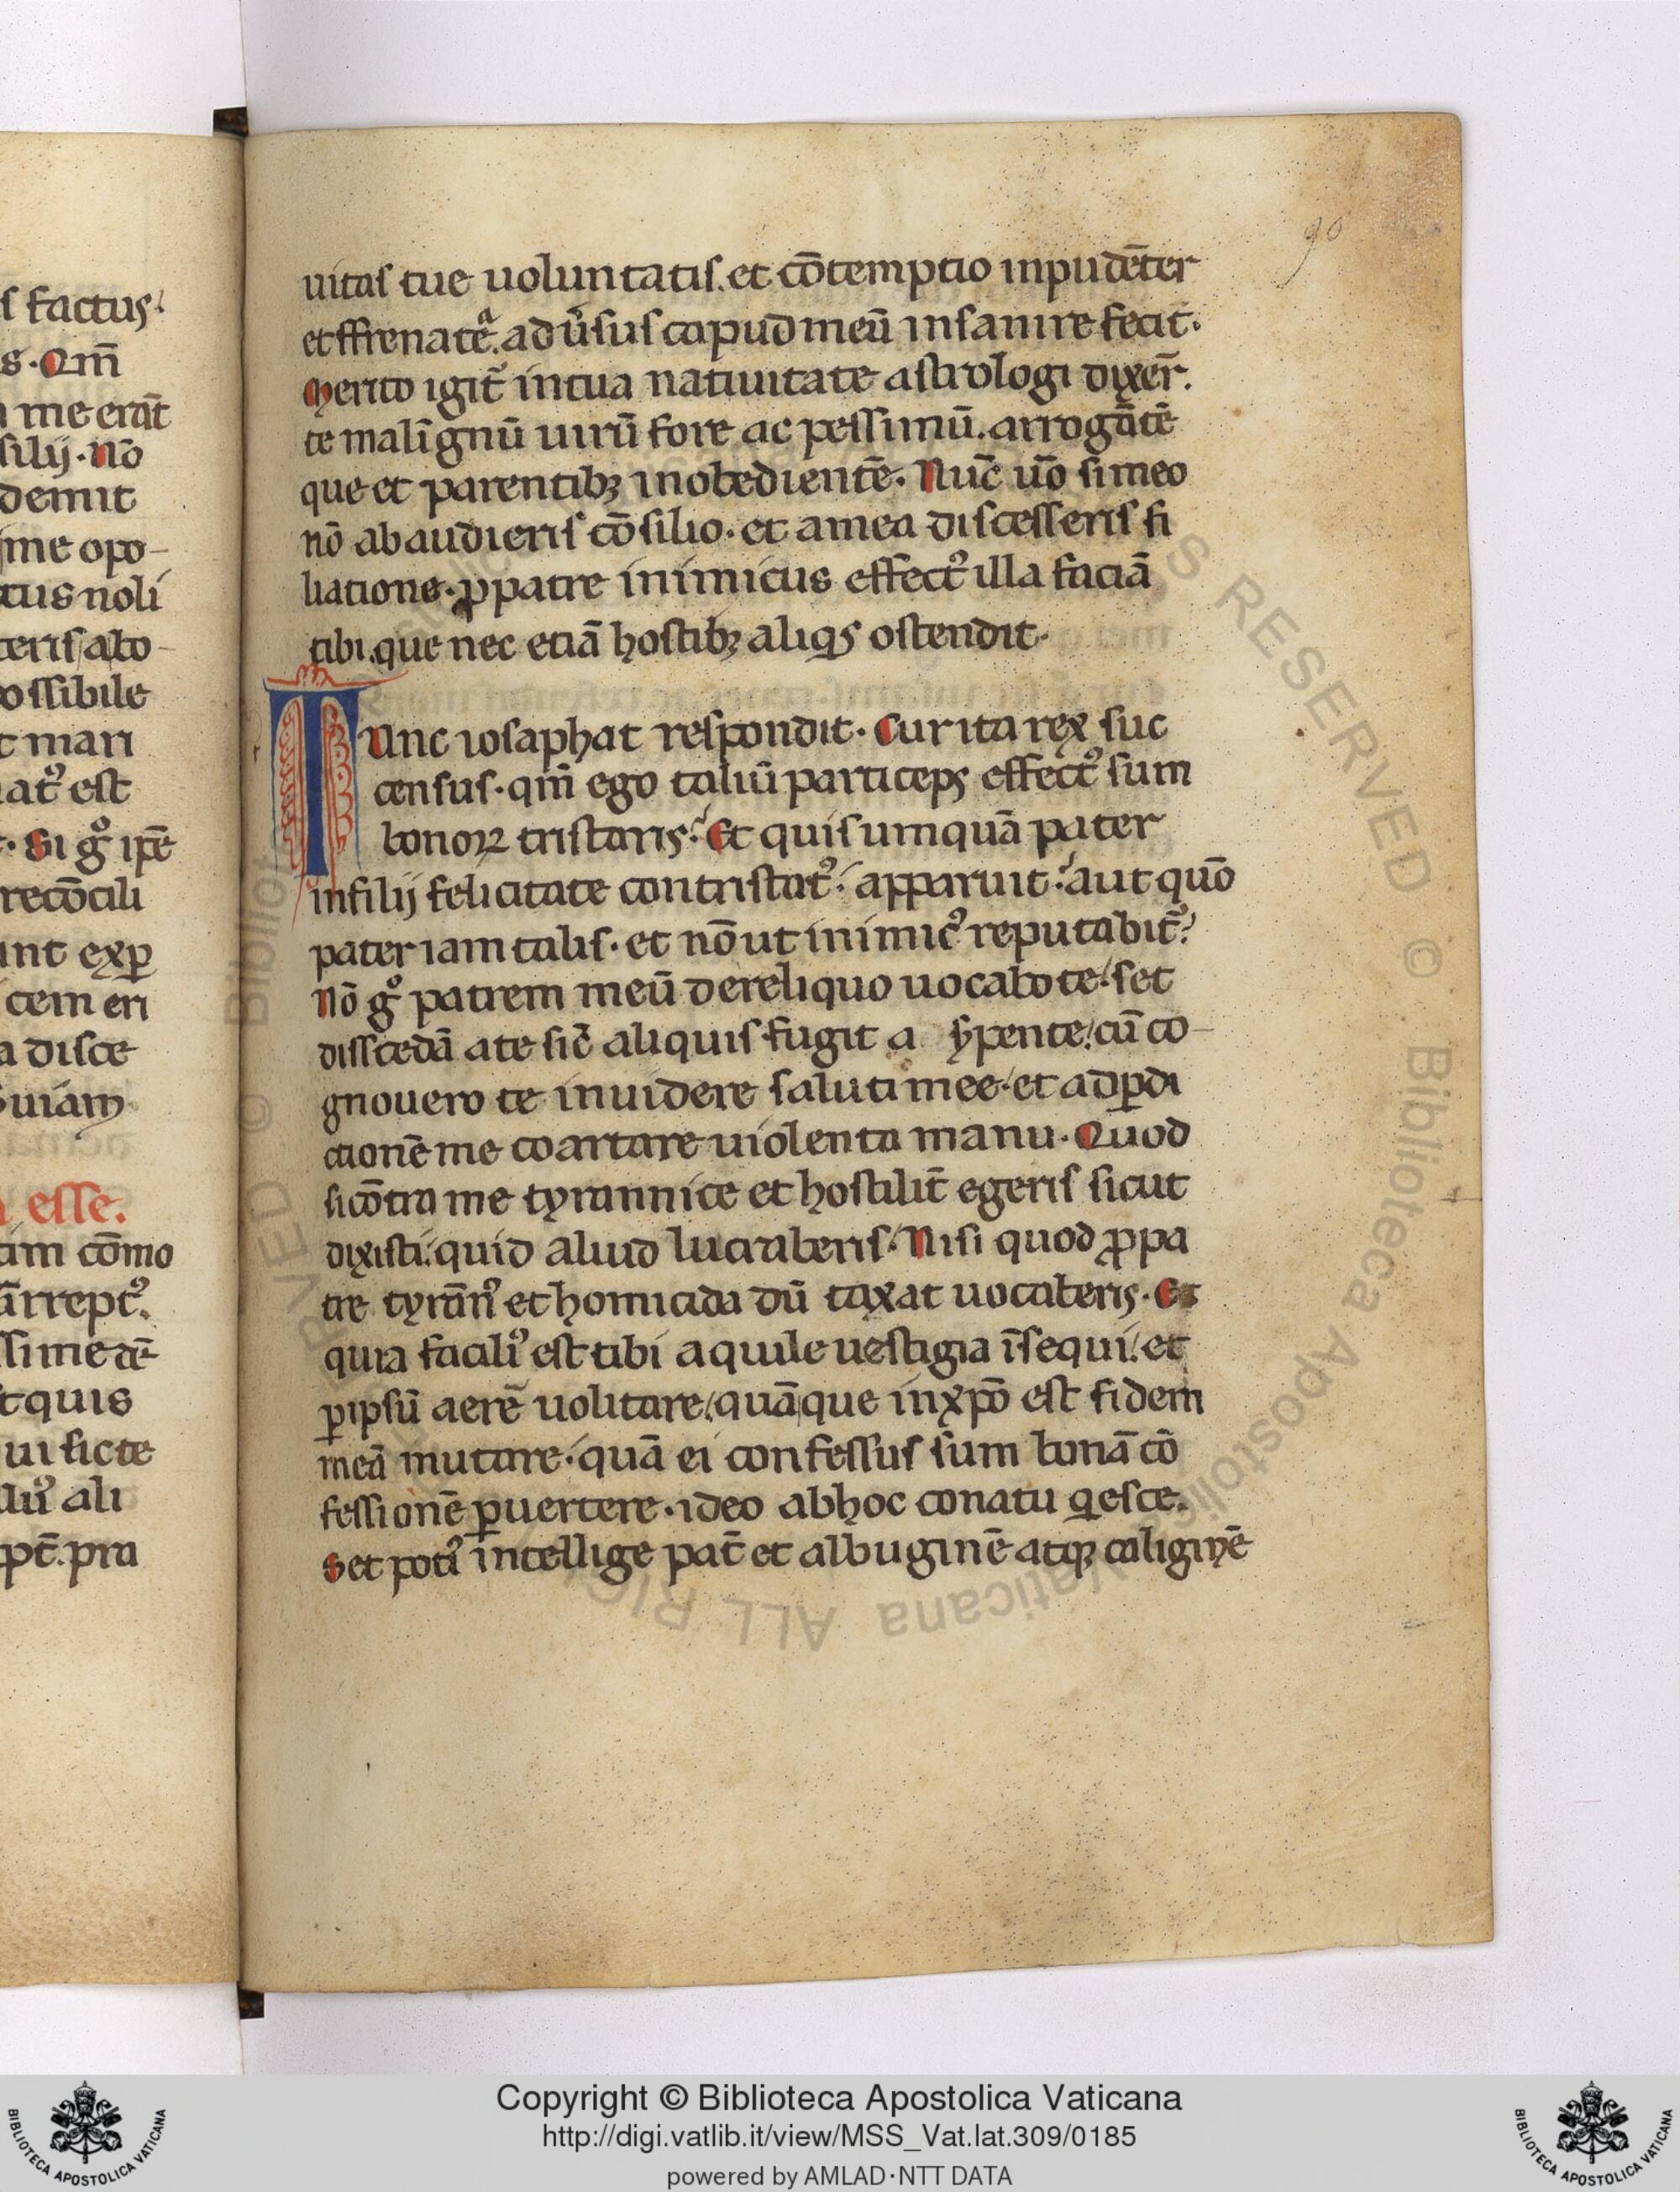 s factus
s. Qm̄
me erāt
silij. Nō
demit
me opo-
tus noli
teris abo-
possibile
t mari
at᷒ est
Si gͦ ip̄e
recōcili
unt exp̲
cem eri
a disce
uiam
esse.
am cōmo
ārrept᷒.
ssime
t quis
ui sicte
ali
pt̄. pra
90
uitas tue uoluntatis. et cōtemptio inpudēter
et ffrenatē. ad ūsus capud meū insanire fecit.
Merito igit̄ in tua natiuitate astrologi dixer̄.
te malignū uirū fore ac pessimū. arrogātē
que et parentibꝫ inobedientē. Nūc ūo si meo
nō abaudieris cōsilio. et a mea discesseris fi
liatione. ꝓ patre inimicus effect᷒ illa faciā
tibi. que nec etiā hostibꝫ aliqͥs ostendit.
TUnc iosaphat respondit. Cur ita rex suc
census. qm̄ ego taliū particeps effect᷒ sum
bonoꝝ tristaris? Et quis umquā pater
in filij felicitate contristat᷒ apparuit? aut quō
pater iam talis. et nō ut inimic᷒ reputabit᷒?
Nō gͦ patrem meū de reliquo uocabo te. set
disscedā a te sic̄ aliquis fugit a s̄pente. cū co-
gnouero te inuidere saluti mee. et ad ꝑdi
ctionē me coartare uiolenta manu. Quod
si cōtra me tyrannice et hostilit̄ egeris sicut
dixisti. quid aliud lucraberis. Nisi quod ꝓ pa
tre tyrān᷒ et homicida dū taxat uocaberis. Et
quia facili᷒ est tibi aquile uestigia īsequi. et
ꝑ ipsū aerē uolitare. quā que in xp̄o est fidem
meā mutare. quā ei confessus sum bonā cō
fessionē ꝑuertere. ideo ab hoc conatu qͥesce.
Set poti᷒ intellige pat̄ et albuginē atqꝫ caliginē
Copyright © Biblioteca Apostolica Vaticana
http://digi.vatlib.it/view/MSS_Vat.lat.309/0185
powered by AMLAD·NTT DATA
BIBLIOTECA APOSTOLICA VATICANA
BIBLIOTECA APOSTOLICA VATICANA
© Biblioteca Apostolica Vaticana ALL RIGHTS RESERVED